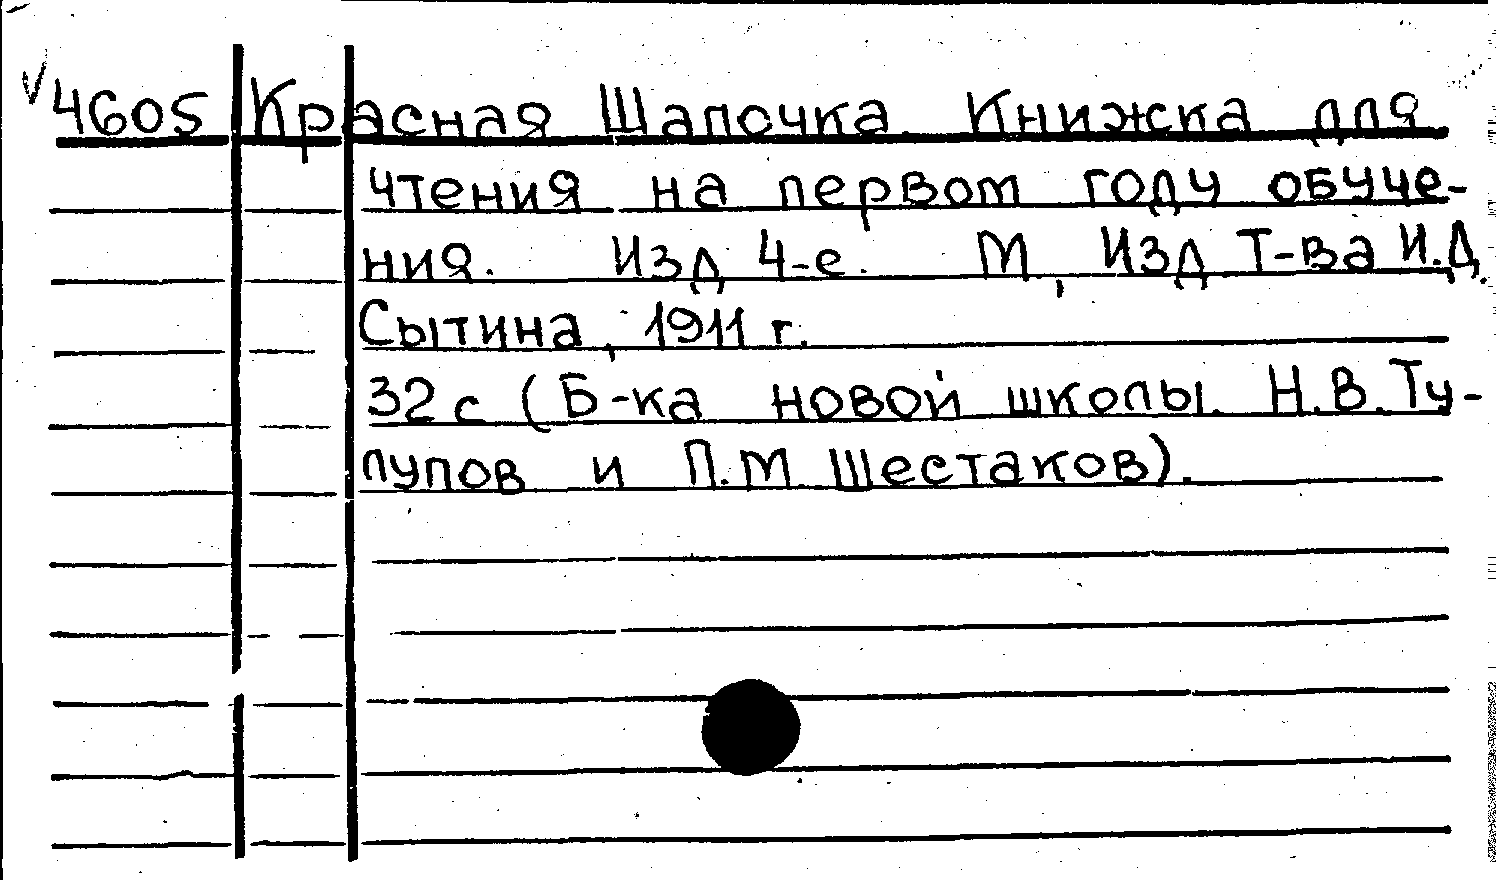 4605 Красная Шапочка. Книжка для
чтения на первом году обуче-
ния. Изд 4-е. М, Изд Т-ва И.Д.
Сытина, 1911 г.
32 с (Б-ка новой школы. Н.В.Ту-
лупов и П.М. Шестаков).